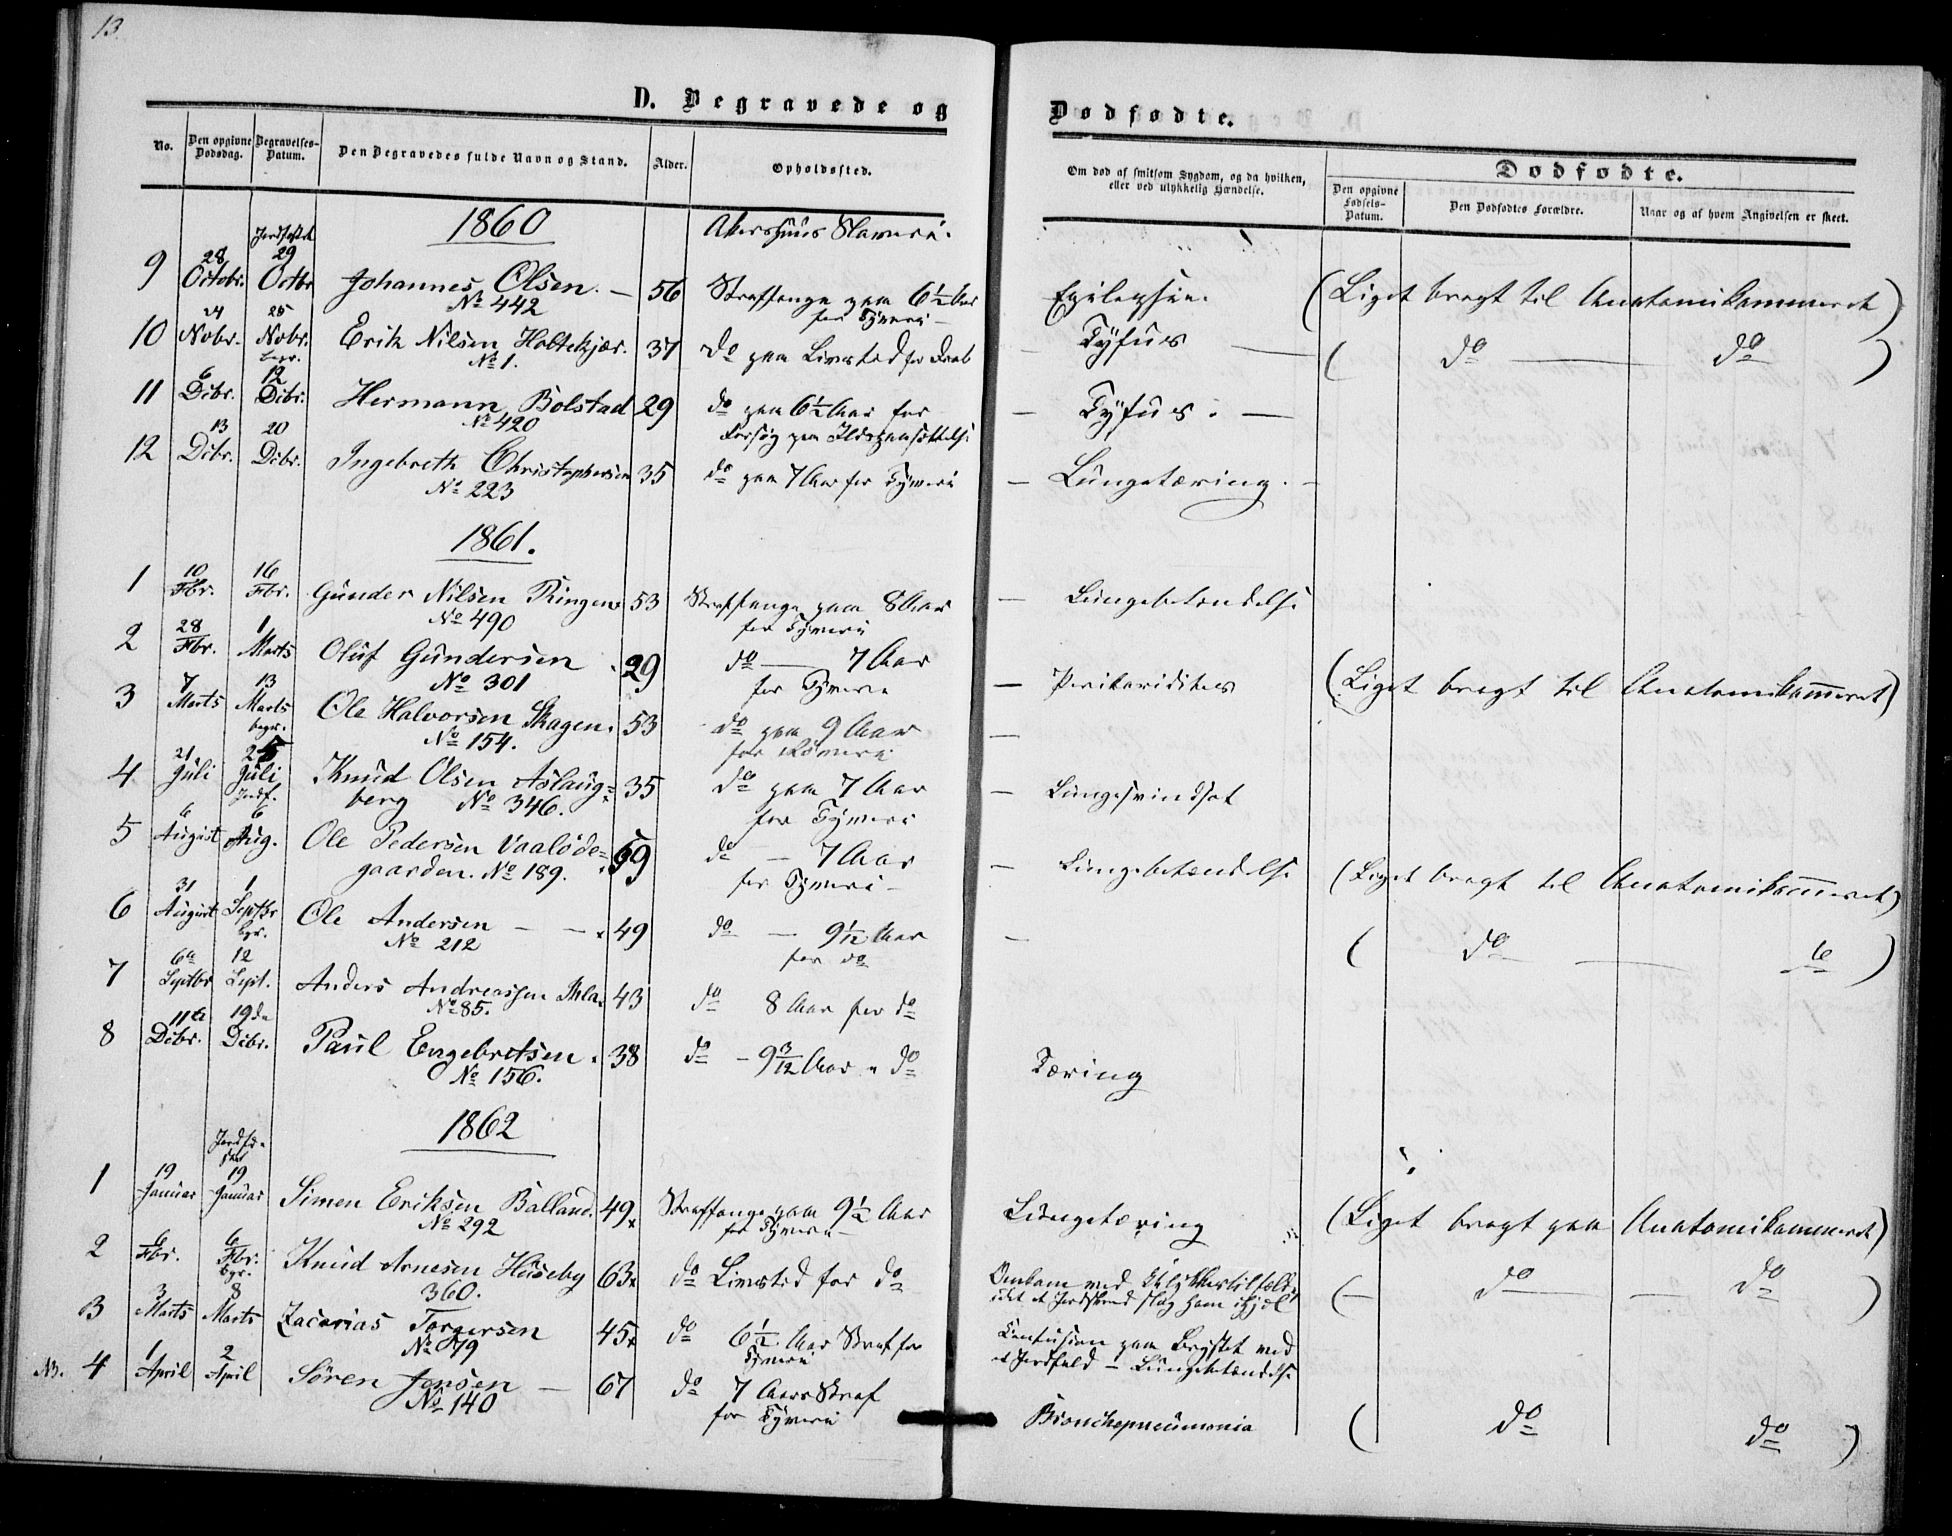 13.
D. Begravede og
Dødfødte.
No.
Den opgivne Dødsdag.
Begravelses-Datum.
Den Begravedes fulde Navn og Stand.
Alder.
Opholdssted.
Om død af smitsom Sygdom, og da hvilken,
eller ved ulykkelig Hændelse.
Dødfødte.
Den opgivne Fødsels-Datum.
Den Dødfødtes Forældre.
Naar og af hvem Angivelsen er skeet.
1860
Akershuus Slaveri.
Jordfæstet
9 28 Octobr. 29 Octbr Johannes Olsen. — 56 Straffange paa 6½ Aar Epilepsie. (Liget bragt til Anatomikammeret)
No 442 for Tyveri —
10 24 Novbr. 25 Novbr. Erik Nilsen Holtekjær. 37 do paa Livstid for Drab — Tyfus — ( do — do )
No 1.
begr.
11 6 Dcbr. 12 Dcbr. Hermann Bolstad 29 do paa 6½ Aar for — Tyfus. —
No 420 Forsøg paa Ildspaasættelse
12 13 Dcbr. 20 Dcbr. Ingebreth Christophersen 35 do paa 7 Aar for Tyveri — Lungetæring. —
No 223
1861.
1 10 Fbr. 16 Fbr. Gunder Nilsen Ringen 53 Straffange paa 8 Aar — Lungebetændelse
No 490 for Tyveri
2 28 Fbr. 1 Marts Oluf Gundersen 29 do — 7 Aar — (Liget bragt til Anatomikammeret)
No 301 for Tyveri
3 7 Marts 13 Marts Ole Halvorsen Skagen. 53 do paa 9 Aar —
begr. No 154. for
4 21 Juli 25 Juli Knud Olsen Aslaug= 35 do paa 7 Aar — Lungesvindsot
Jordf. berg No 346. for Tyveri
5 6 August 6 Aug. Ole Pedersen Vaaløde= 59 do — 7 Aar — Lungebetændelse (Liget bragt til Anatomikammeret)
gaarden. No 189. for Tyveri —
6 31 August 1 Septbr Ole Andersen — — 49 do — 9 1/12 Aar — ( do — )
bgr. No 212 for do
7 6te Septbr 12 Sept. Anders Andreassen 43 do 8 Aar for do
No 85.
8 11te Dcbr. 19de Dcbr. Paul Engebretsen. 38 do — 9 3/12 Aar " do Tæring
No 156.
1862
1 19 Januar 19 Januar Simen Eriksen Balland. 49 Straffange paa 9½ Aar Lungetæring (Liget bragt paa Anatomikammeret)
No 292 for Tyveri —
2 6 Fbr. 6 Fbr. Knud Arnesen Huseby 63 do Livstid for do Omkom ved Ulykkestilfælde, (— do — do )
bgr. 360. idet et Jordskred slog ham ihjel
3 3 Marts 8 Marts Zacarias Torgersen 45 do 6½ Aar Straf for Contusion paa Brystet ved
No 79 Tyveri et Jordfald — Lungebetændelse
NB. 4 1 April 2 April Søren Jensen — 67 do 7 Aars Straf Bronchopneumonia ( do do )
No 140 for Tyveri